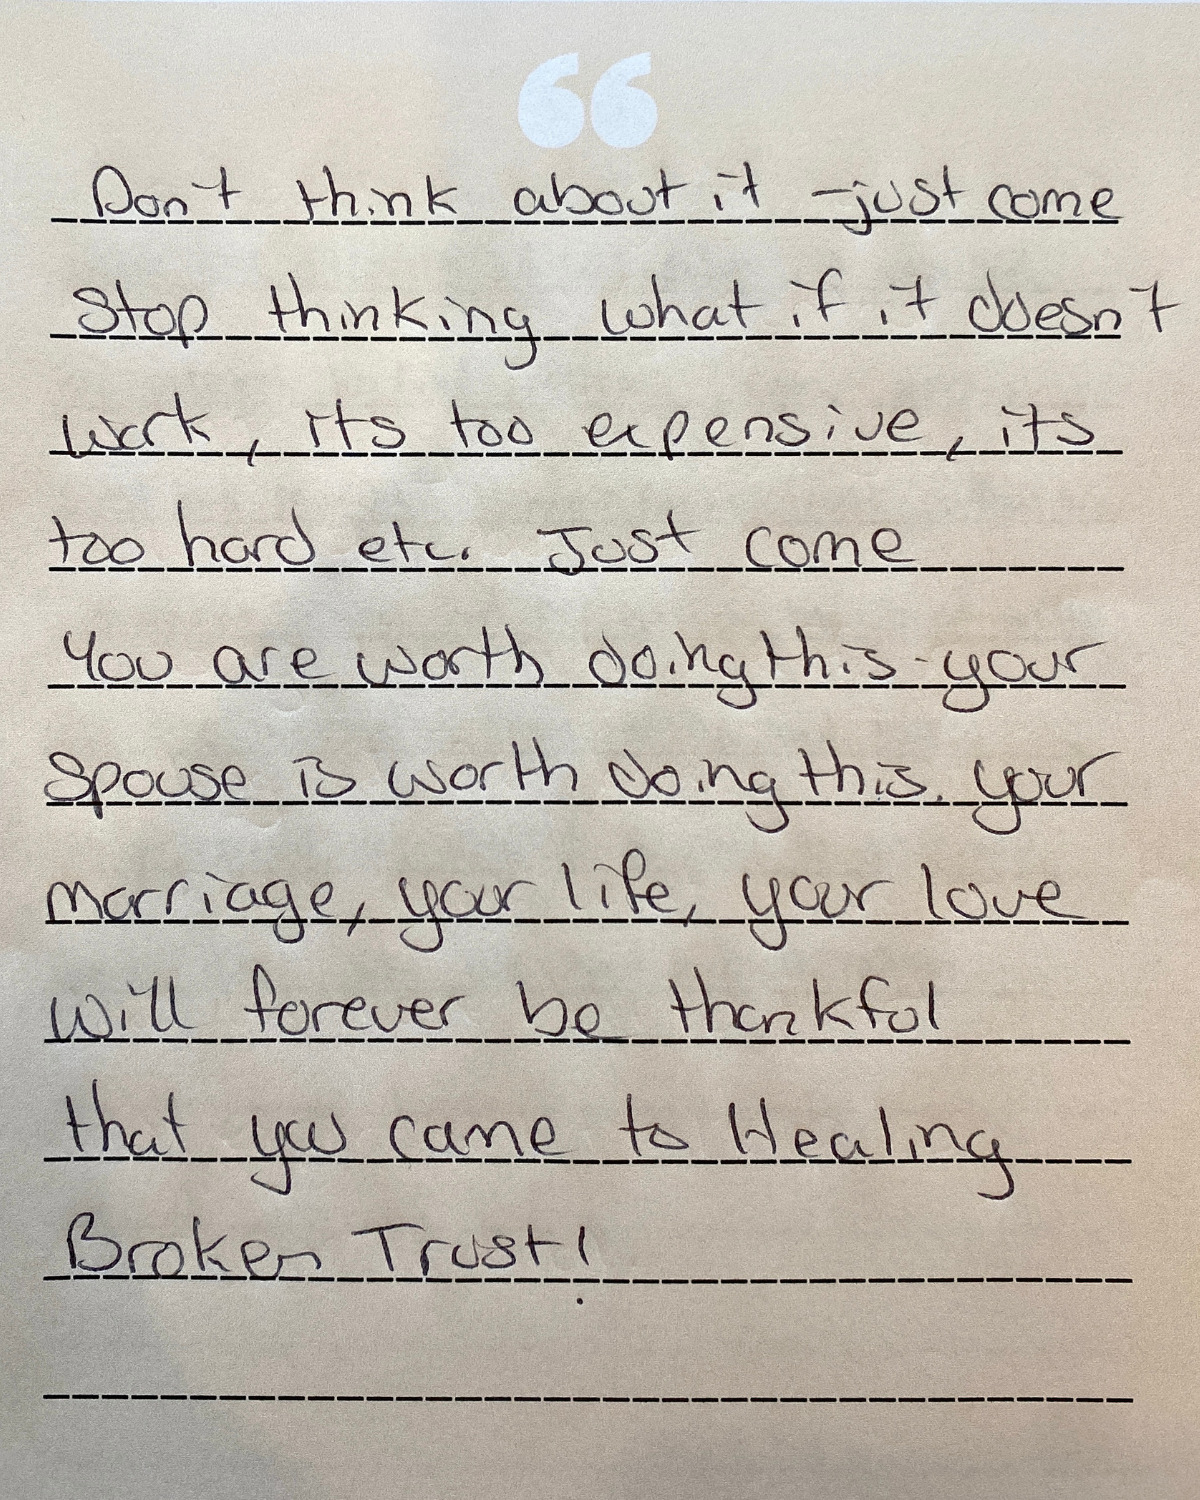 “
Don't think about it - just come
Stop thinking what if it doesn't
work, its too expensive, its
too hard etc. Just come
You are worth doing this - your
spouse is worth doing this. your
marriage, your life, your love
will forever be thankful
that you came to Healing
Broken Trust!